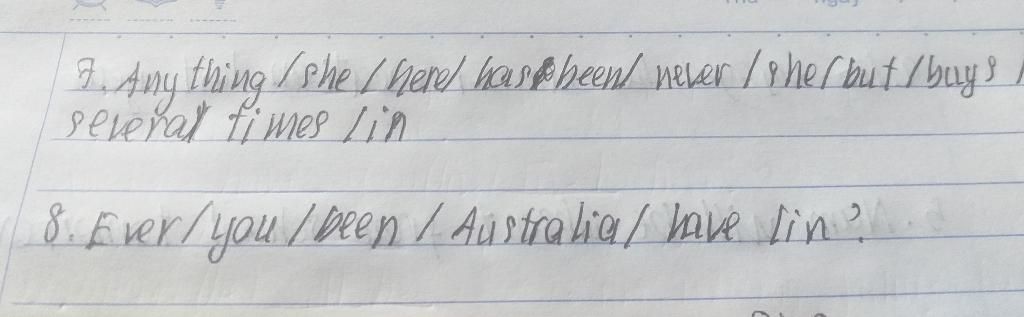 7. Anything / she / here / has been / never / she / but / buys /
several times / in
8. Ever / you / been / Australia / have / in?